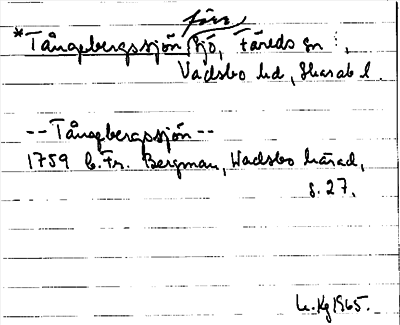 förr
*Tångebergssjön, sjö, Färeds sn,
Vadsbo hd, Skarab l.
--Tångebergssjön--
1759 C. Fr. Bergman, Wadsbo härad,
s. 27.
1965.